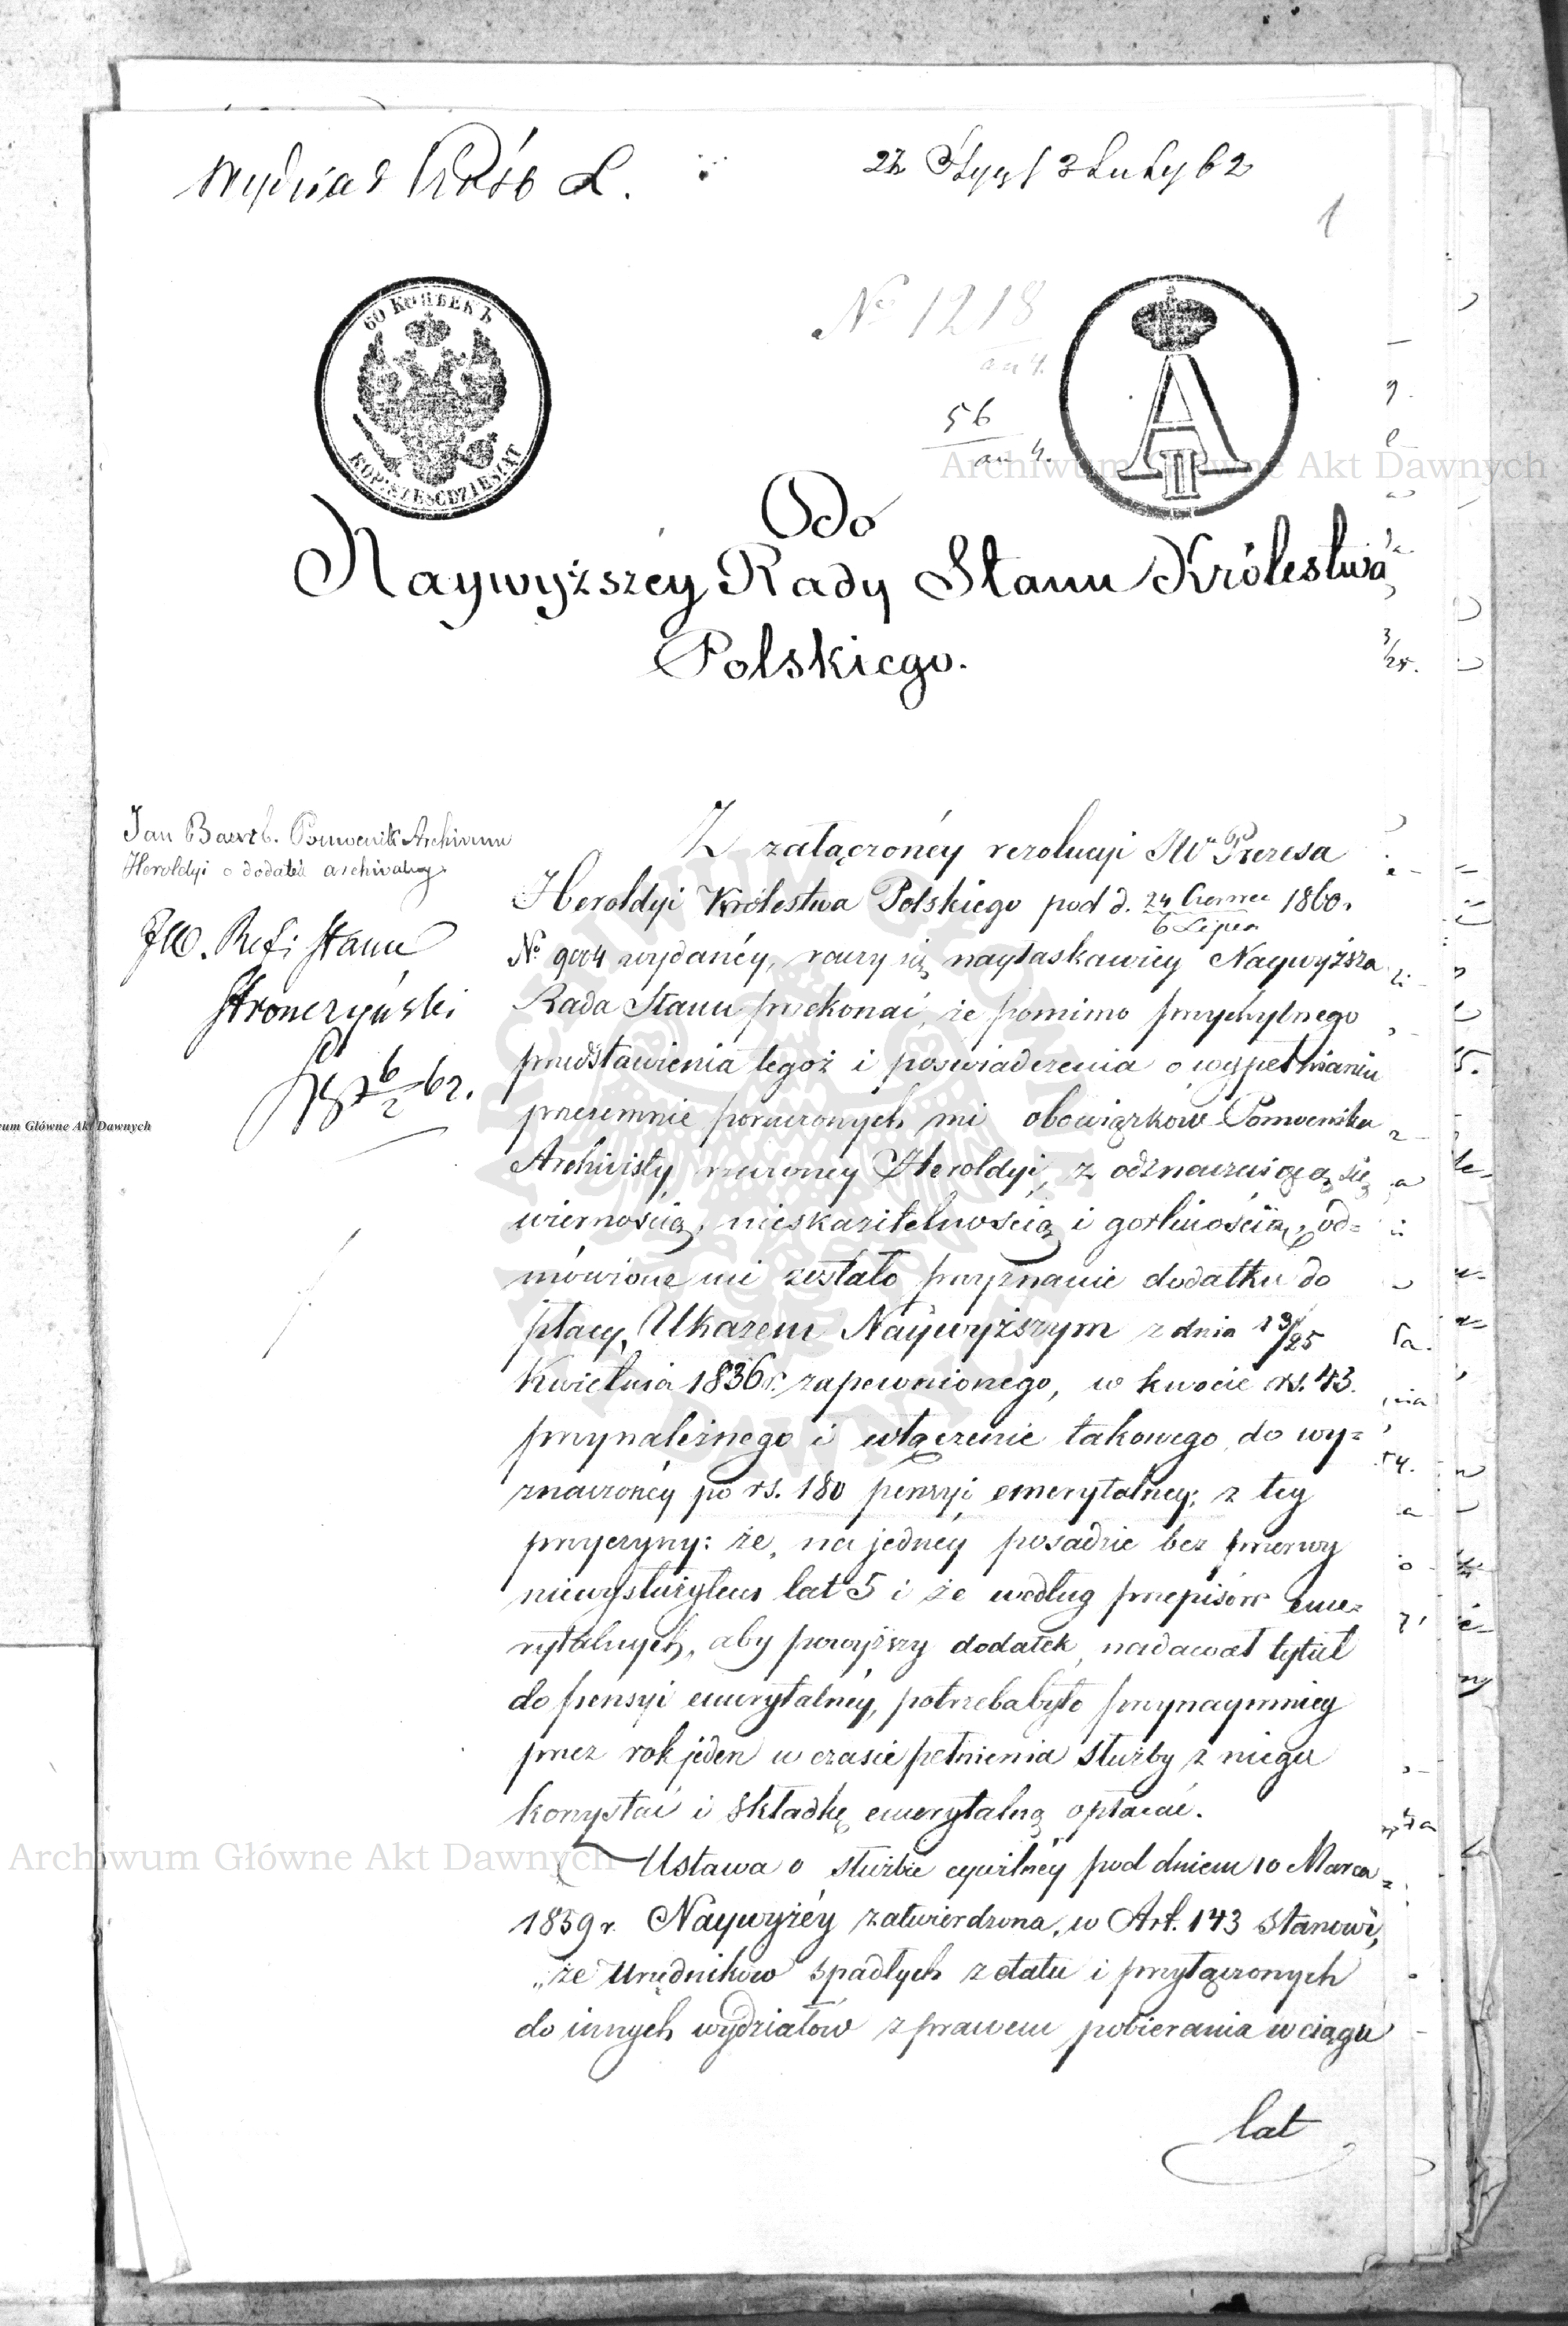 Wydział
22 Stycz/3 Luty 62
1
60 КОПѢЕКЪ
KOP: SZEŚĆDZIESZĄT
№ 1218
an 4.
56
an 4.
A II
Archiwum Główne Akt Dawnych
Do
Naywyższéy Rady Stanu Królestwa
Polskiego.
Jan Pomocnik Archiwum
Heroldyi o dodatek
Ref: Stanu
Stronczyński
6/2 62.
Z załączonéy rezolucyi JW Prezesa
Heroldyi Królestwa Polskiego pod d. 24 Czerwca/6 Lipca 1860.
№ 9004 wydanéy, raczy się nayłaskawiey Naywyższa
Rada Stanu przekonać, że pomimo przychylnego
przedstawienia tegoż i poświadczenia o wypełnianiu
przezemnie poruczonych mi obowiązków Pomocnika
Archiwisty rzeczoney Heroldyi, z odznaczaiącą się
wiernością, nieskazitelnością i gorliwością, od=
mówione mi zostało przyznanie dodatku do
płacy, Ukazem Naywyższym z dnia 13/25
Kwietnia 1836 r. zapewnionego, w kwocie rs. 43.
przynależnego i włączenie takowego do wy=
znaczonéy po rs. 180 pensyi emerytalnéy; z téy
przyczyny: że, na jednéy posadzie bez przerwy
niewysłużyłem lat 5 i że według przepisów eme=
rytalnych, aby powyższy dodatek nadawał tytuł
do pensyi emerytalnéy, potrzeba było przynaymniey
przez rok jeden w czasie pełnienia służby z niego
korzystać i składkę emerytalną opłacać.
Ustawa o służbie cywilnéy pod dniem 10 Marca
1859 r. Naywyżéy zatwierdzona, w Art. 143 stanowi,
„że Urzędników spadłych z etatu i przyłączonych
do innych wydziałów z prawem pobierania w ciągu
lat
Archiwum Główne Akt Dawnych
um Główne Akt Dawnych
ARCHIWUM GŁÓWNE AKT DAWNYCH